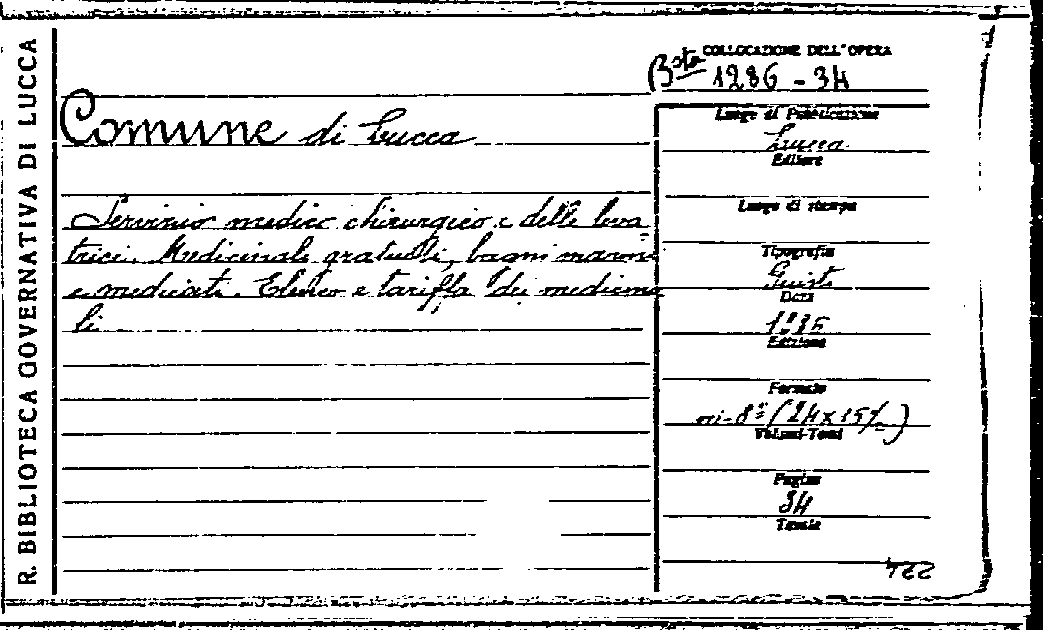 R. BIBLIOTECA GOVERNATIVA DI LUCCA
COLLOCAZIONE DELL'OPERA
Bsta 1286 - 34
Comune di Lucca
Servizio medico chirurgico e delle leva
trici. Medicinali gratuiti, bagni marini
e medicati. Elenco e tariffa dei medicina
li
Luogo di Pubblicazione
Lucca
Editore
Luogo di stampa
Tipografia
Giusti
Data
Edizione
Formato
in-8° (24x15½)
Volumi-Tomi
Pagine
34
Tavole
422